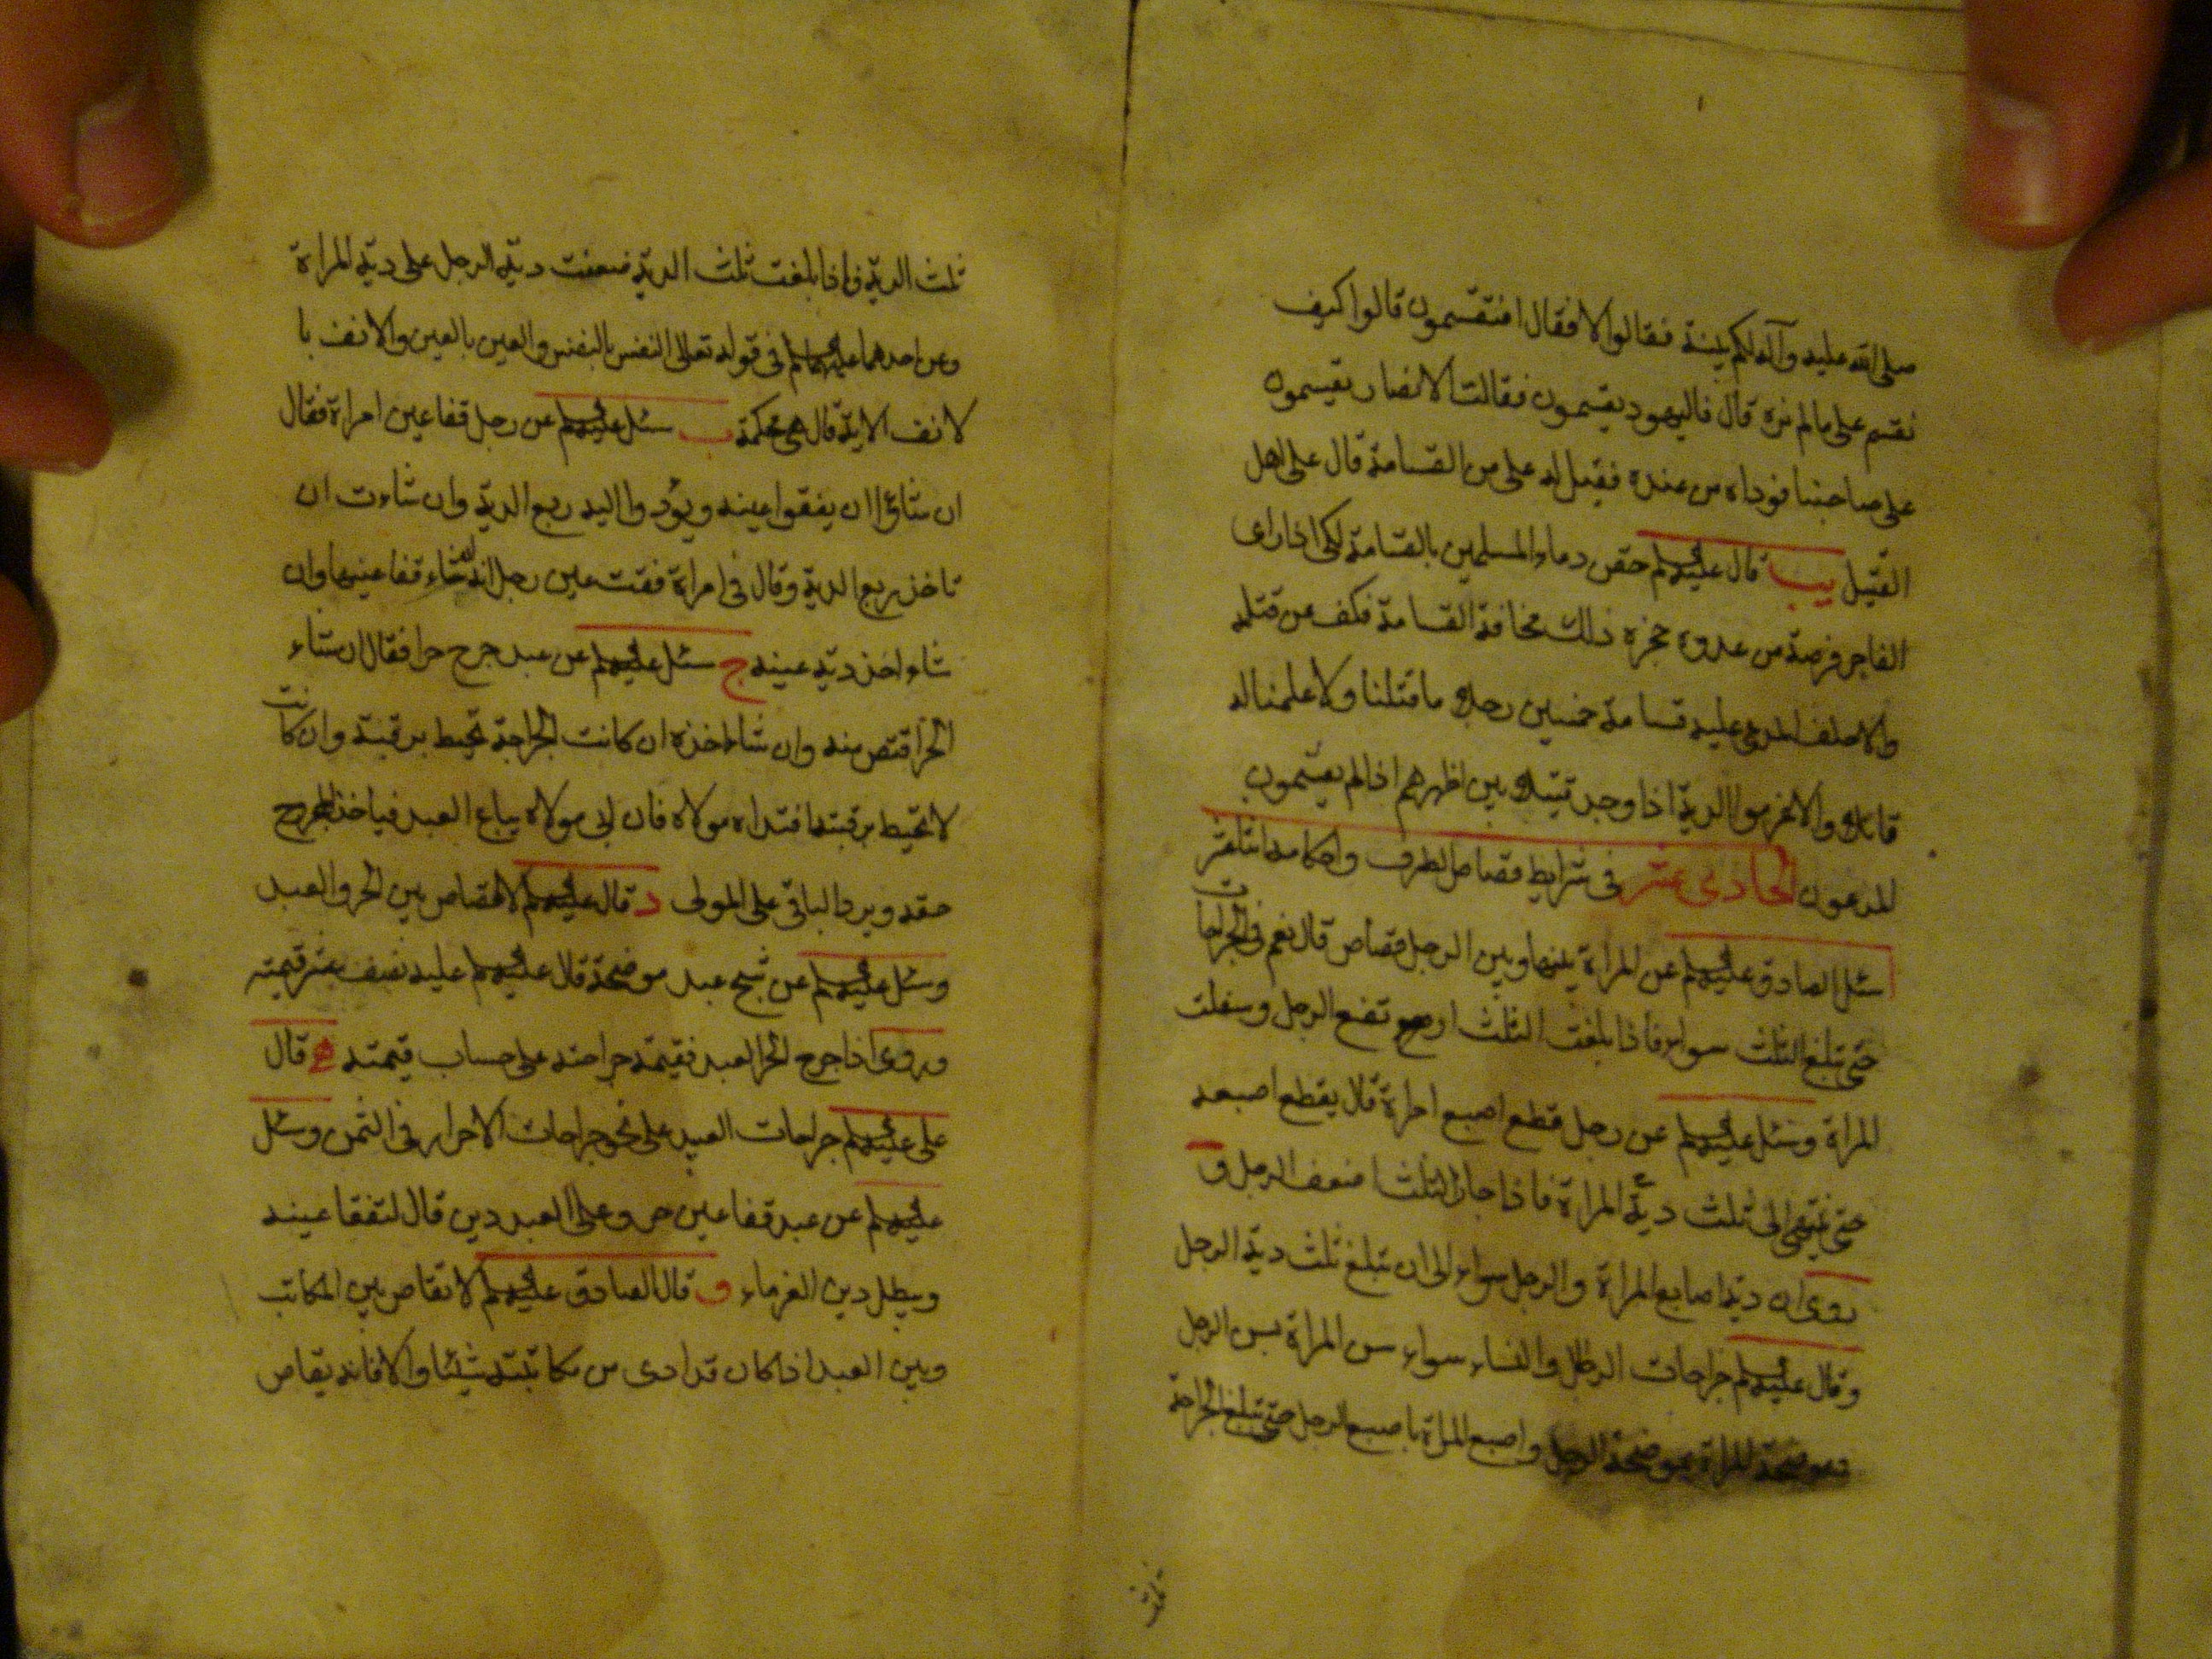 صلى الله عليه وآله لكم بينة فقالوا لا فقال افتقسمون قالوا كيف
نقسم على مالم نره قال فاليهود يقسمون فقالت الانصار يقسمون
على صاحبنا فوداه من عنده فقيل له على من القسامة قال على اهل
القتيل يب قال عليه‌السلم حقن دماء المسلمين بالقسامة لكى اذا راى
الفاجر فرصة من عدوه حجزه ذلك مخافة القسامة فكف عن قتله
والا حلف المدعى عليه قسامة خمسين رجلا ما قتلنا ولا علمنا له
قاتلا والا اغرموا الدية اذا وجد قتيلا بين اظهرهم اذا لم يقسمون
المدعون الحادى عشر فى شرايط قصاص الطرف واحكامه اثنا عشر
سئل الصادق عليه‌السلم عن المراة بينها وبين الرجل قصاص قال نعم فى الجراحات
حتى تبلغ الثلث سواء فاذا بلغت الثلث ارتفع الرجل وسفلت
المراة وسئل عليه‌السلم عن رجل قطع اصبع امراة قال يقطع اصبعه
حتى ينتهى الى ثلث دية المراة فاذا جاز الثلث اضعف الرجل و
روى ان دية اصابع المراة والرجل سواء الى ان تبلغ ثلث دية الرجل
وقال عليه‌السلم جراحات الرجال والنساء سواء سن المراة بسن الرجل
وموضحة المراة بموضحة الرجل واصبع المراة باصبع الرجل حتى تبلغ الجراحة
ثلث
ثلث الدية فاذا بلغت ثلث الدية ضعفت دية الرجل على دية المراة
وعن احدهما عليهماالسلم فى قوله تعالى النفس بالنفس والعين بالعين والانف با
لانف الاية قال هى محكمة ب سئل عليه‌السلم عن رجل قفا عين امراة فقال
ان شاؤا ان يفقوا عينه ويؤدوا اليه ربع الدية وان شاءت ان
تاخذ ربع الدية وقال فى امراة فقت عين رجل انه ان شاء فقا عينها وان
شاء اخذ دية عينه ج سئل عليه‌السلم عن عبد جرح حرا فقال ان شاء
الحر اقتص منه وان شاء اخذه ان كانت الجراحة تحيط برقبته وان كانت
لا تحيط برقبته افتداه مولاه فان ابى مولاه يباع العبد فياخذ المجروح
حقه ويرد الباقى على المولى د قال عليه‌السلم لا قصاص بين الحر والعبد
وسئل عليه‌السلم عن شج عبد موضحة قال عليه‌السلم عليه نصف عشر قيمته
وروى اذا جرح الحر العبد فقيمة جراحته على حساب قيمته ه قال
على عليه‌السلم جراحات العبيد على نحو جراحات الاحرار فى الثمن وسئل
عليه‌السلم عن عبد قفا عين حر وعلى العبد دين قال لتفقا عينه
ويبطل دين الغرماء و قال الصادق عليه‌السلم لا تقاص بين المكاتب
وبين العبد اذا كان قد ادى من مكاتبته شيئا والا فانه يقاص